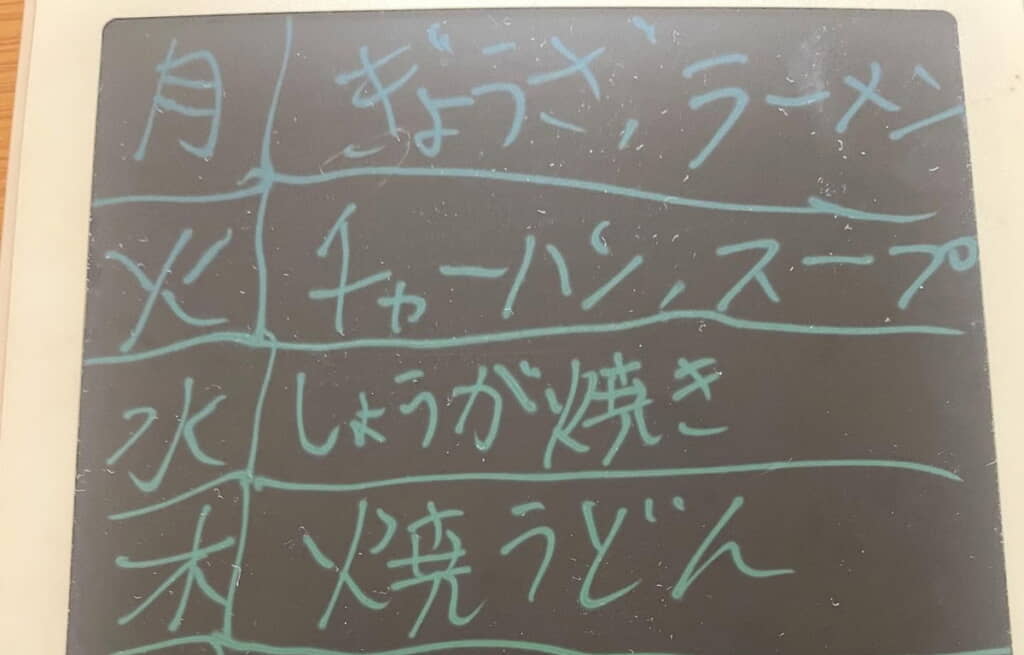 月 ぎょうざ,ラーメン
火 チャーハン,スープ
水 しょうが焼き
木 焼うどん